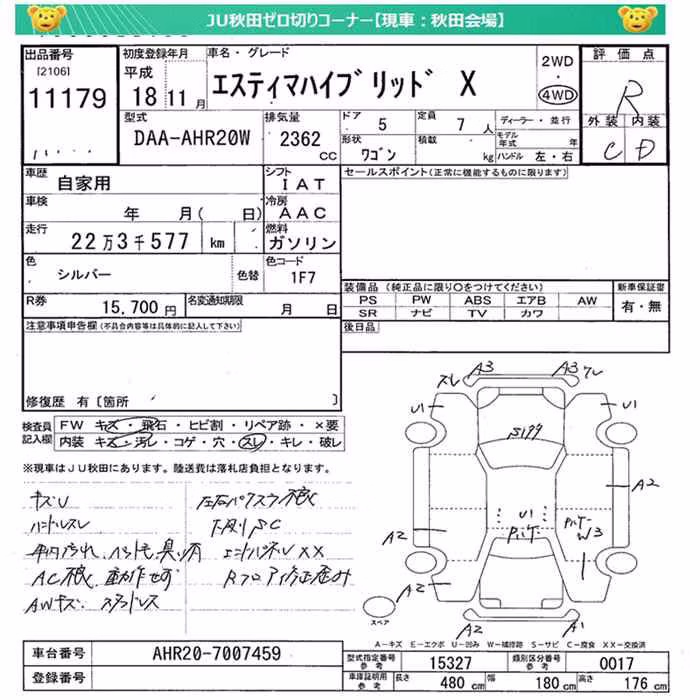 JU秋田ゼロ切りコーナー【現車：秋田会場】
出品番号
[2106]
11179
初度登録年月
平成
18 11 月
車名・グレード
エスティマハイブリッド X
2WD
4WD
評価点
R
外装 内装
C D
型式
DAA-AHR20W
排気量
2362
cc
ドア
5
定員
7 人
ディーラー・並行
モデル年式 年
形状
ワゴン
積載
kg
ハンドル 左・右
車歴
自家用
シフト
IAT
車検
年 月( 日)
冷房
AAC
走行
22万3千577 km
燃料
ガソリン
色
シルバー
色替
色コード
1F7
R券
15,700 円
名変通知期限
月 日
セールスポイント(正常に機能するものに限ります)
装備品 (純正品に限り○をつけてください)
PS PW ABS エアB AW
SR ナビ TV カワ
新車保証書
有・無
後日品
注意事項申告欄(不具合内容等は具体的に記入して下さい)
修復歴 有〔箇所 〕
検査員記入欄
FW キズ・飛石・ヒビ割・リペア跡・×要
内装 キズ・汚レ・コゲ・穴・スレ・キレ・破レ
※現車はJU秋田にあります。陸送費は落札店負担となります。
キズU
ハンドルスレ
AWキズ
下廻りSC
スレ A3 A3 ワレ
U1 U1
S199
A2
U1
A2
W3
A2
A2 A1
スペア
A-キズ E-エクボ U-凹み W-補修跡 S-サビ C-腐食 XX-交換済
車台番号
AHR20-7007459
登録番号
型式指定番号
参考
15327
類別区分番号
参考
0017
車庫証明用
参考
長さ
480 cm
幅
180 cm
高さ
176 cm